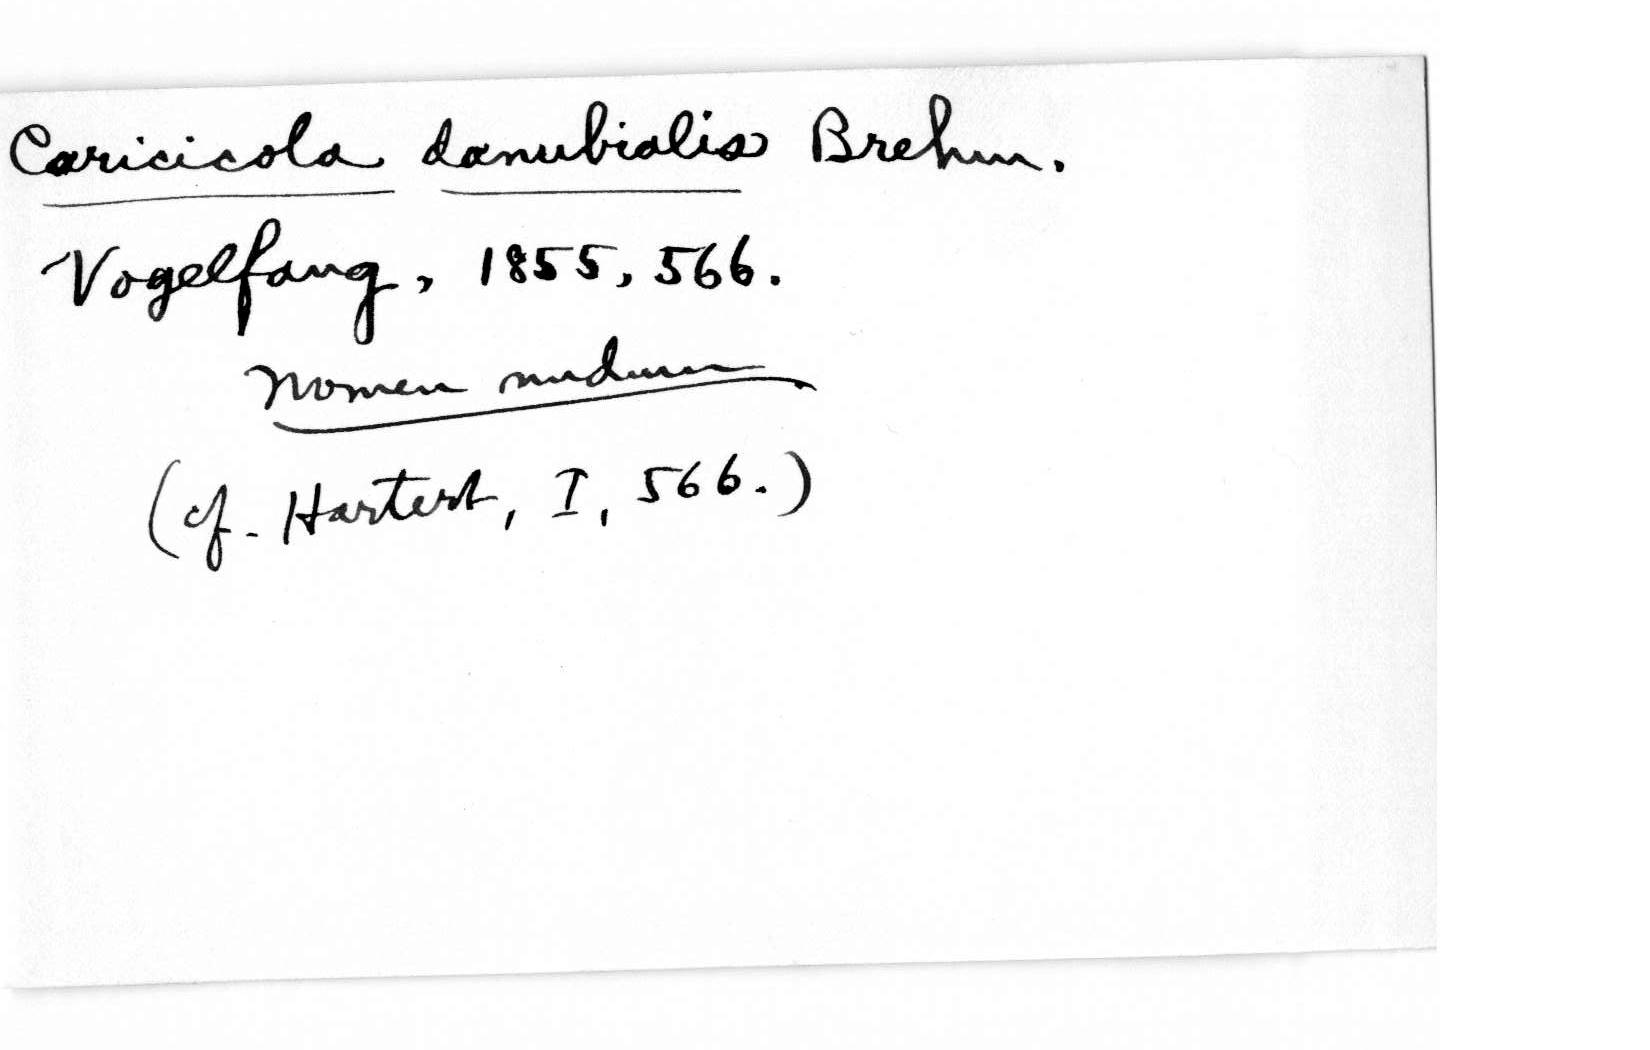 Caricicola danubialis Brehm.
Vogelfang, 1855, 566.
Nomen nudum
(cf. Hartert, I, 566.)